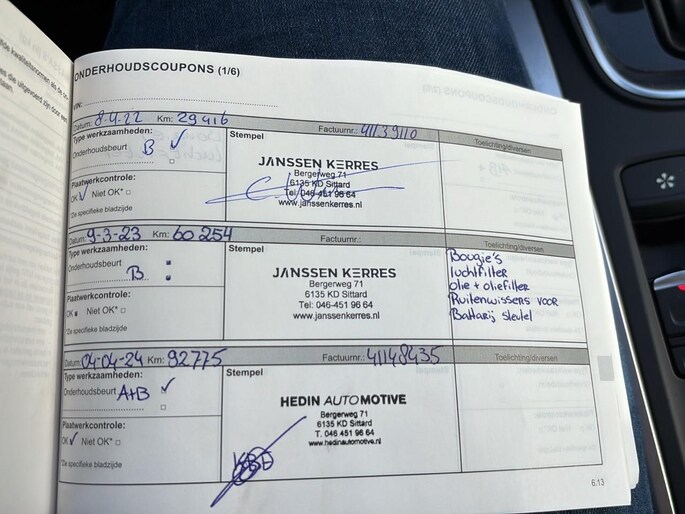 ONDERHOUDSCOUPONS (1/6)
VIN:
Datum: 8-4.22 Km: 29416 Factuurnr.: 41139110
Type werkzaamheden: Stempel Toelichting/diversen
Onderhoudsbeurt B ✓
JANSSEN KERRES
Bergerweg 71
6135 KD Sittard
Tel: 046-451 96 64
www.janssenkerres.nl
Plaatwerkcontrole:
OK ✓ Niet OK*
*De specifieke bladzijde
Datum: 9-3-23 Km: 60 254 Factuurnr.:
Type werkzaamheden: Stempel Toelichting/diversen
Onderhoudsbeurt
B
JANSSEN KERRES
Bergerweg 71
6135 KD Sittard
Tel: 046-451 96 64
www.janssenkerres.nl
Bougie's
luchtfilter
olie + oliefilter
Ruitenwissers voor
Battarij sleutel
Plaatwerkcontrole:
OK Niet OK*
*De specifieke bladzijde
Datum: 04-04-24 Km: 92775 Factuurnr.: 41148435
Type werkzaamheden: Stempel Toelichting/diversen
Onderhoudsbeurt A+B ✓
HEDIN AUTOMOTIVE
Bergerweg 71
6135 KD Sittard
T. 046 451 96 64
www.hedinautomotive.nl
Plaatwerkcontrole:
OK ✓ Niet OK*
*De specifieke bladzijde
6.13